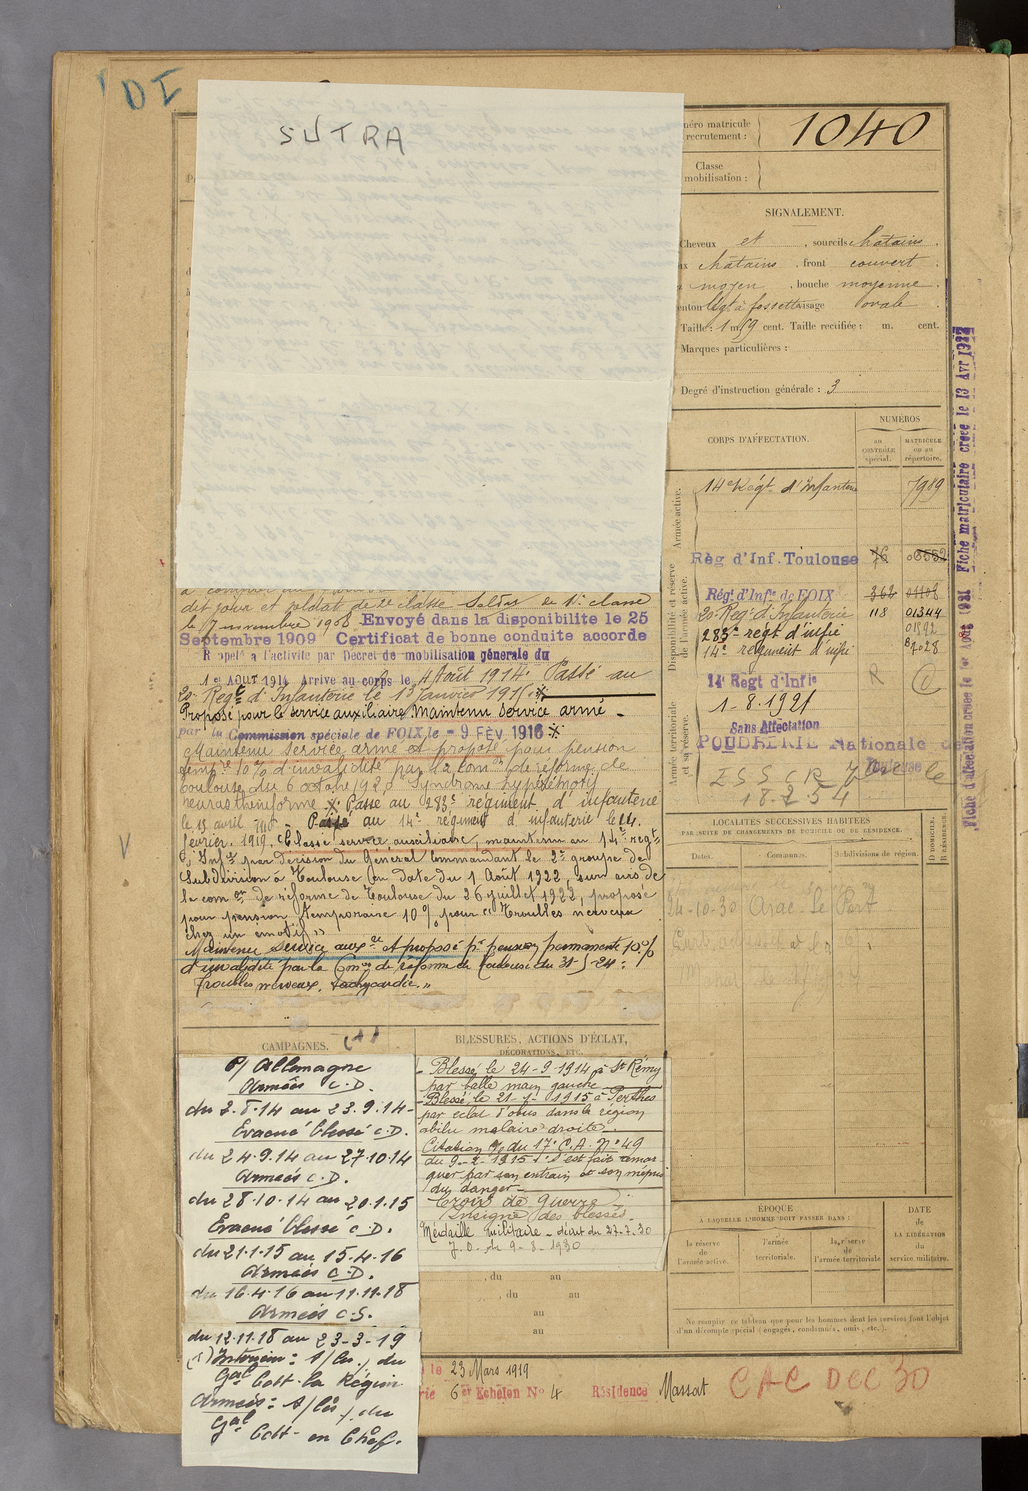 DI
SUTRA
Numéro matricule
recrutement :
1040
Classe
mobilisation :
SIGNALEMENT.
Cheveux et , sourcils châtains .
châtains , front couvert .
moyen , bouche moyenne .
menton visage ovale .
Taille : 1 m 59 cent. Taille rectifiée : m. cent.
Marques particulières :
Degré d'instruction générale : 3
CORPS D'AFFECTATION.
NUMÉROS
au CONTRÔLE spécial.
MATRICULE ou au répertoire.
Armée active.
14e Régt. d'Infanterie 7989
Disponibilité et réserve de l'armée active.
Règ d'Inf. Toulouse 76
Régt d'Infie de FOIX
20e Reg. d'Infanterie 118 01344
283e regt d'infie
14e régiment d'infie
Armée territoriale et sa réserve.
14e Règt d'Infie
1-8-1921
Sans Affectation
POUDRERIE Nationale de
Toulouse
18-2-54
Fiche matriculaire créée le 13 Avr 1927
Fiche d'affectation créée le 1er Août 1921
dit jour et soldat de 2e classe Soldat de 1e classe
le 7 novembre 1908 Envoyé dans la disponibilite le 25
Septembre 1909 Certificat de bonne conduite accorde
Rappelé a l'activite par Décret de mobilisation générale du
1er AOUT 1914 Arrive au corps le 4 Août 1914. Passé au
20e Regt d'Infanterie le 13 Janvier 1915.
Proposé pour le service auxiliaire, Maintenu service armé -
par la Commission spéciale de FOIX le - 9 FÉV. 1916
Maintenu service armé et proposé pour pension
tempre 10% d'invalidité par la comon de réforme de
Toulouse du 6 octobre 192 Syndrome hyperémotif
neurasthéniforme Passé au 283e régiment d'infanterie
le 15 avril - Passé au 14e régiment d'infanterie le 14
février 1919. Classé service auxiliaire, maintenu au 14e regt
d'Infie par décision du Général Commandant le 2e groupe de
Subdivision à Toulouse en date du 1 Août 1922, sur avis de
la comon de réforme de Toulouse du 26 juillet 1922, proposé
pour pension temporaire 10% pour "Troubles nerveux
chez un émotif"
Maintenu service auxre et proposé pr pension permanente 10%
d'invalidité par la Comon de réforme de Toulouse du 31-5-24 :
"troubles nerveux, tachycardie."
V
LOCALITÉS SUCCESSIVES HABITÉES
PAR SUITE DE CHANGEMENTS DE DOMICILE OU DE RÉSIDENCE.
Dates. Communes. Subdivisions de région. D DOMICILE. R RÉSIDENCE.
24-10-30 Arac le Port
CAMPAGNES. (1)
c/ Allemagne
Armées C.D.
du 3.8.14 au 23.9.14-
Evacué blessé C.D.
du 24.9.14 au 27.10.14
Armées C.D.
du 28.10.14 au 20.1.15
Evacué blessé C.D.
du 21.1.15 au 15.4.16
Armées C.D.
du 16.4.16 au 11.11.18
Armées C.S.
du 12.11.18 au 23-3-19
(1) Intérieur : S/les /. du
Gal Cott la Région
Armées : S/les /. du
Gal Cott- en Chef.
BLESSURES, ACTIONS D'ÉCLAT,
DÉCORATIONS, ETC.
- Blessé le 24-9-1914 à St Rémy
par balle main gauche
- Blessé le 21-1-1915 à Perthes
par éclat d'obus dans la région
malaire droite.
Citation o/ du 17e C.A. No 49
du 9-2-1915 : "S'est fait remar
quer par son entrain et son mépris
du danger"
Croix de Guerre
Insigne des blessés.
Médaille militaire - décret du 27-7-30
J.O. du 9-8-1930
, du au
, du au
au
au
ÉPOQUE
À LAQUELLE L'HOMME DOIT PASSER DANS :
la réserve de l'armée active.
l'armée territoriale.
la réserve de l'armée territoriale
DATE de LA LIBÉRATION du service militaire.
Ne remplir ce tableau que pour les hommes dont les services font l'objet
d'un décompte spécial (engagés, condamnés, omis, etc.).
le 23 Mars 1919
6er Echelon No 4 Résidence Massat
CAC DEC 30